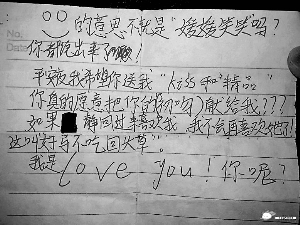 No.
Date
的意思不就是“嫒嫒笑笑吗?
你都跑出来了啊!
平安夜我希望你送我“kiss和“精品”
你真的愿意把你的初吻献给我???
如果 静回过来喜欢我,我不会再喜欢他了!
这叫好马不吃回头草”。
我是love you!你呢?